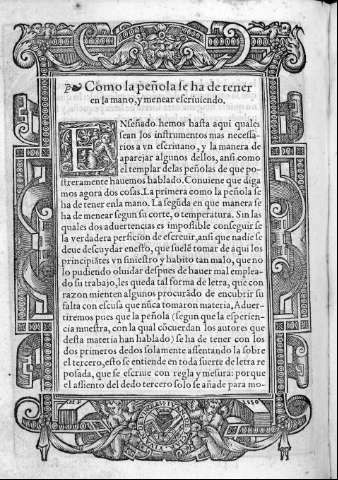 Como la peñola se ha de tener
en la mano, y menear escriuiendo.
ENseñado hemos hasta aqui quales
sean los instrumentos mas necessa-
rios a vn escriuano, y la manera de
aparejar algunos dellos, ansi como
el templar delas peñolas de que po-
streramente hauemos hablado. Conuiene que diga
mos agora dos cosas. La primera como la peñola se
ha de tener enla mano. La segũda en que manera se
ha de menear segun su corte, o temperatura. Sin las
quales dos aduertencias es impossible conseguir se
la verdadera perficion de escreuir, ansi que nadie se
deue descuydar enesto, que suelẽ tomar de aqui los
principiãtes vn siniestro y habito tan malo, que no
lo pudiendo oluidar despues de hauer mal emplea-
do su trabajo, les queda tal forma de letra, que con
razon mienten algunos procurãdo de encubrir su
falta con escusa que nũca tomaron materia. Aduer-
tiremos pues que la peñola (segun que la esperien-
cia muestra, con la qual cõcuerdan los autores que
desta materia han hablado) se ha de tener con los
dos primeros dedos solamente assentando la sobre
el tercero, esto se entiende en toda suerte de letra re
posada, que se escriue con regla y mesura: porque
el assiento del dedo tercero solo se añade para mo-